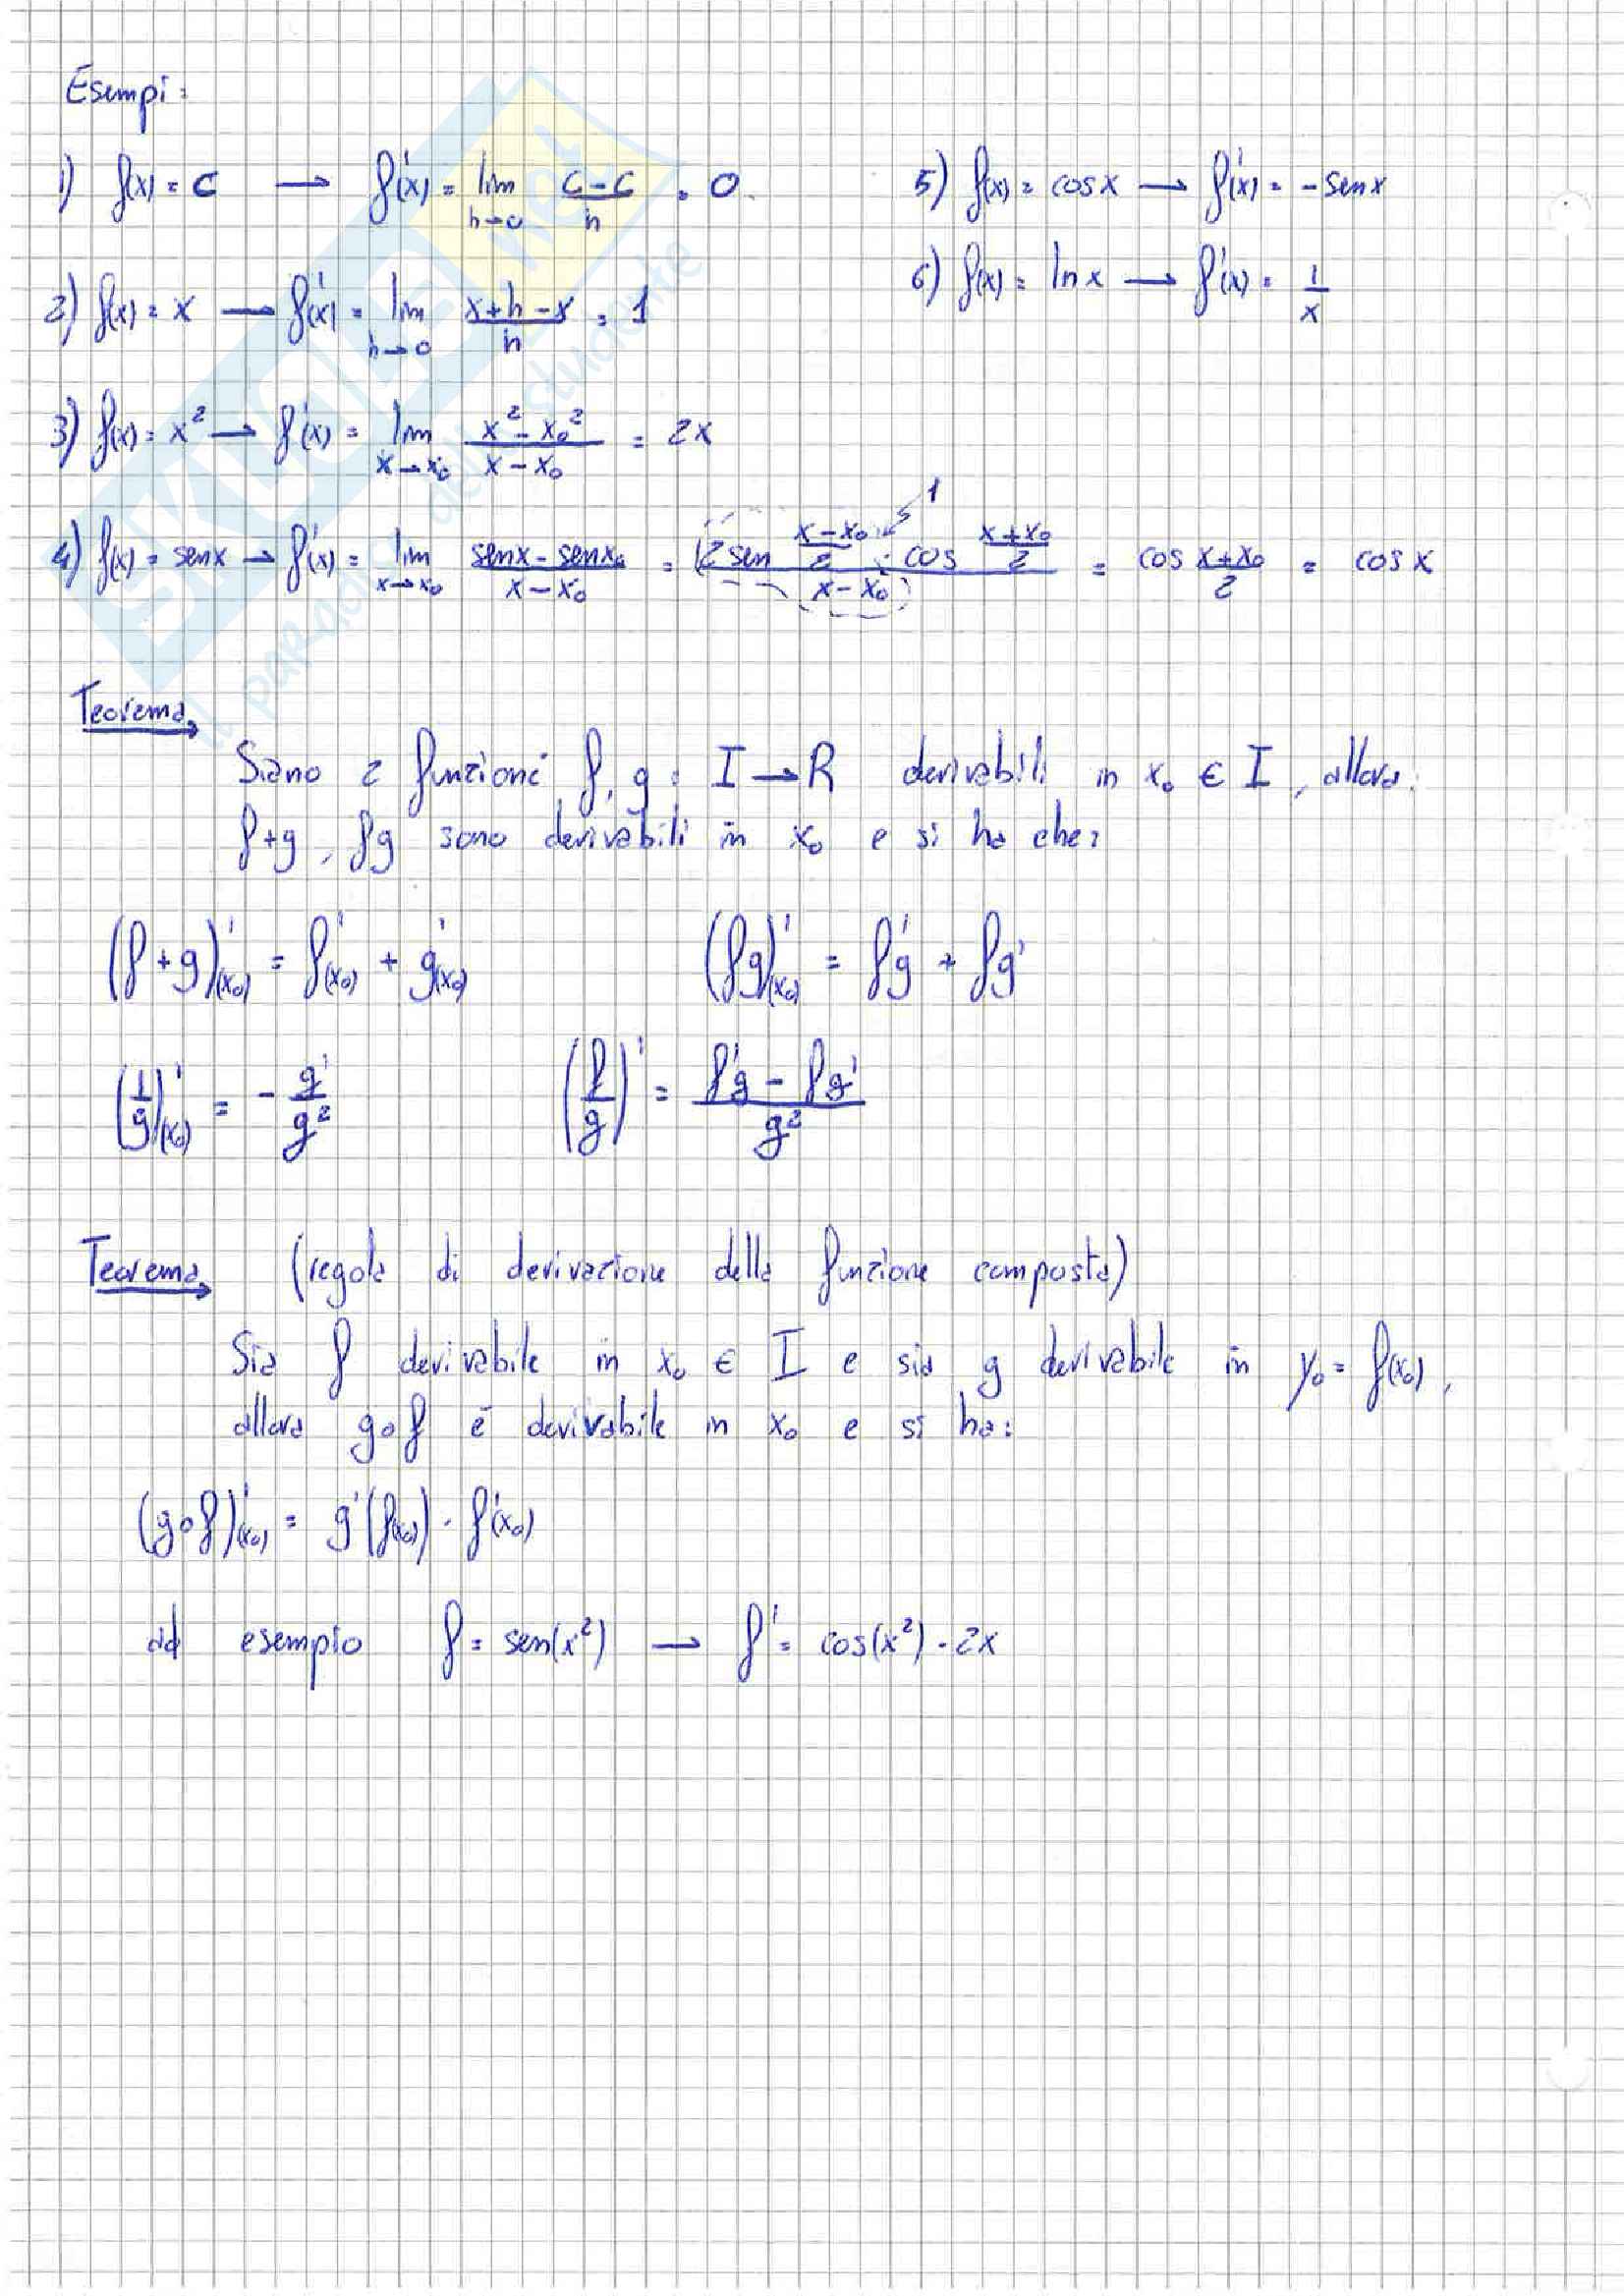 Esempi:
1) f(x) = c → f'(x) = lim h→0 (c-c)/h = 0.
5) f(x) = cos x → f'(x) = - sen x
6) f(x) = ln x → f'(x) = 1/x
2) f(x) = x → f'(x) = lim h→0 (x+h-x)/h = 1
3) f(x) = x² → f'(x) = lim x→x₀ (x²-x₀²)/(x-x₀) = 2x
1
4) f(x) = sen x → f'(x) = lim x→x₀ (sen x - sen x₀)/(x-x₀) = (2 sen (x-x₀)/2 · cos (x+x₀)/2)/(x-x₀) = cos (x+x₀)/2 = cos x
Teorema
Siano 2 funzioni f, g : I → R derivabili in x₀ ∈ I, allora:
f+g, fg sono derivabili in x₀ e si ha che:
(f+g)'(x₀) = f'(x₀) + g'(x₀) (fg)'(x₀) = f'g + fg'
(1/g)'(x₀) = - g'/g² (f/g)' = (f'g - fg')/g²
Teorema (regola di derivazione della funzione composta)
Sia f derivabile in x₀ ∈ I e sia g derivabile in y₀ = f(x₀),
allora g∘f è derivabile in x₀ e si ha:
(g∘f)'(x₀) = g'(f(x₀)) · f'(x₀)
ad esempio f = sen(x²) → f' = cos(x²) · 2x
SKUOLA.net
il paradiso dello studente